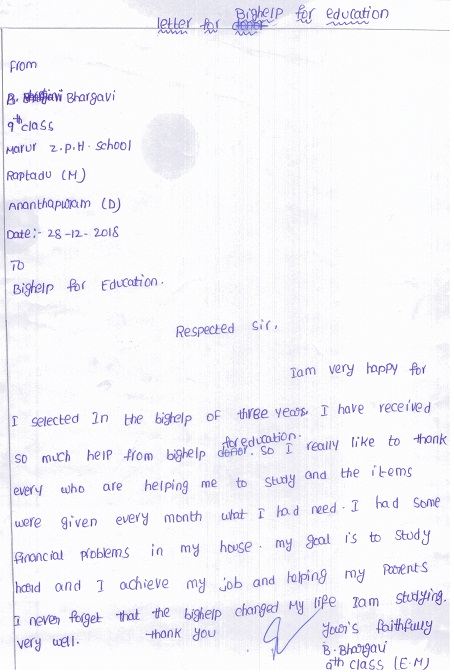 letter for Bighelp for education
From
B. Bhargavi
9th class
Marur Z.P.H. School
Raptadu (M)
Ananthapuram (D)
Date:- 28-12-2018
To
Bighelp for Education.
Respected Sir,
Iam very happy for
I selected In the bighelp of three years. I have received
so much help from bighelp for education. So I really like to thank
every who are helping me to study and the items
were given every month what I had need. I had some
financial problems in my house. my goal is to study
hard and I achieve my job and helping my Parents
I never forget that the bighelp changed My life Iam studying.
very well. thank you
Your's faithfully
B. Bhargavi
9th class (E.M)